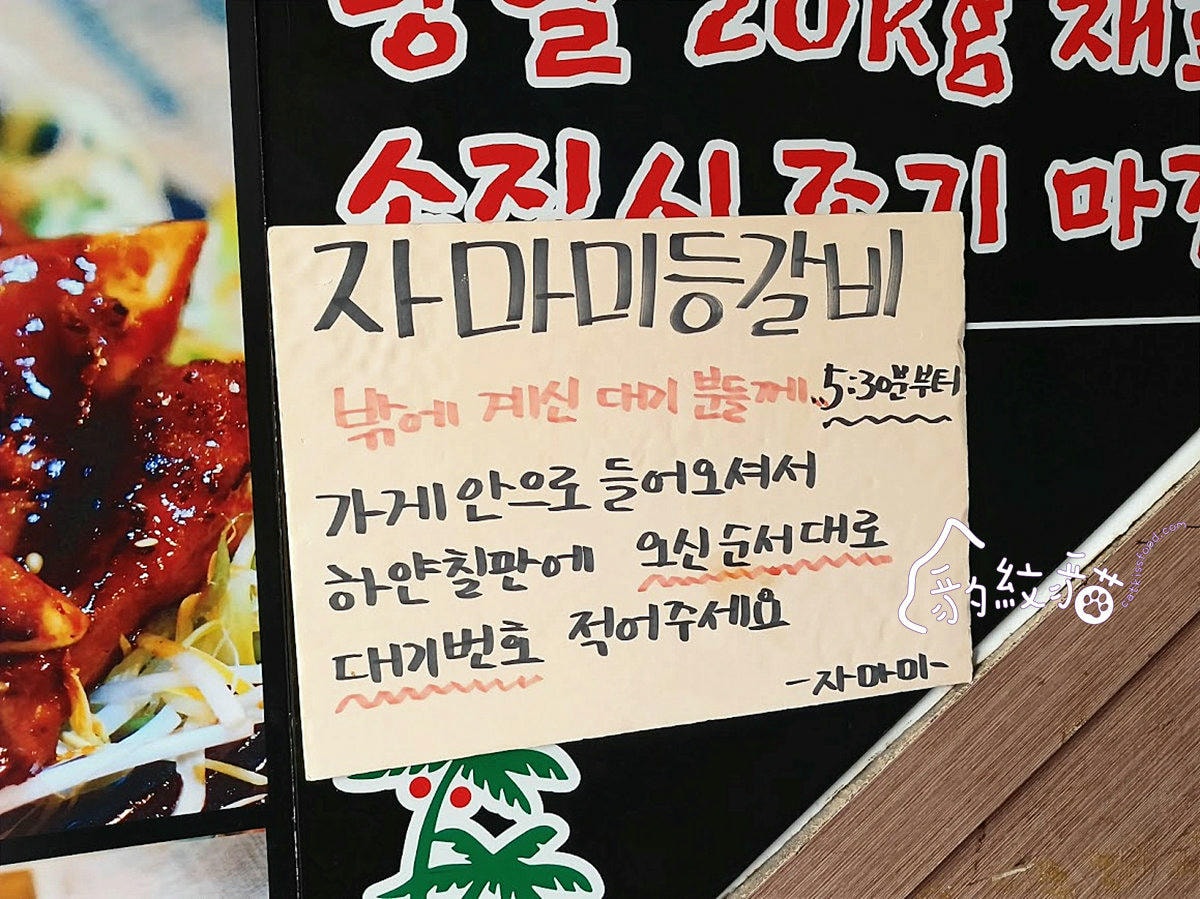 20kg
소진시 조기 마
자마미등갈비
밖에 계신 대기 분들께.. 5:30분부터
가게 안으로 들어오셔서
하얀칠판에 오신순서대로
대기번호 적어주세요
-자마미-
豹紋貓
catkissfood.com